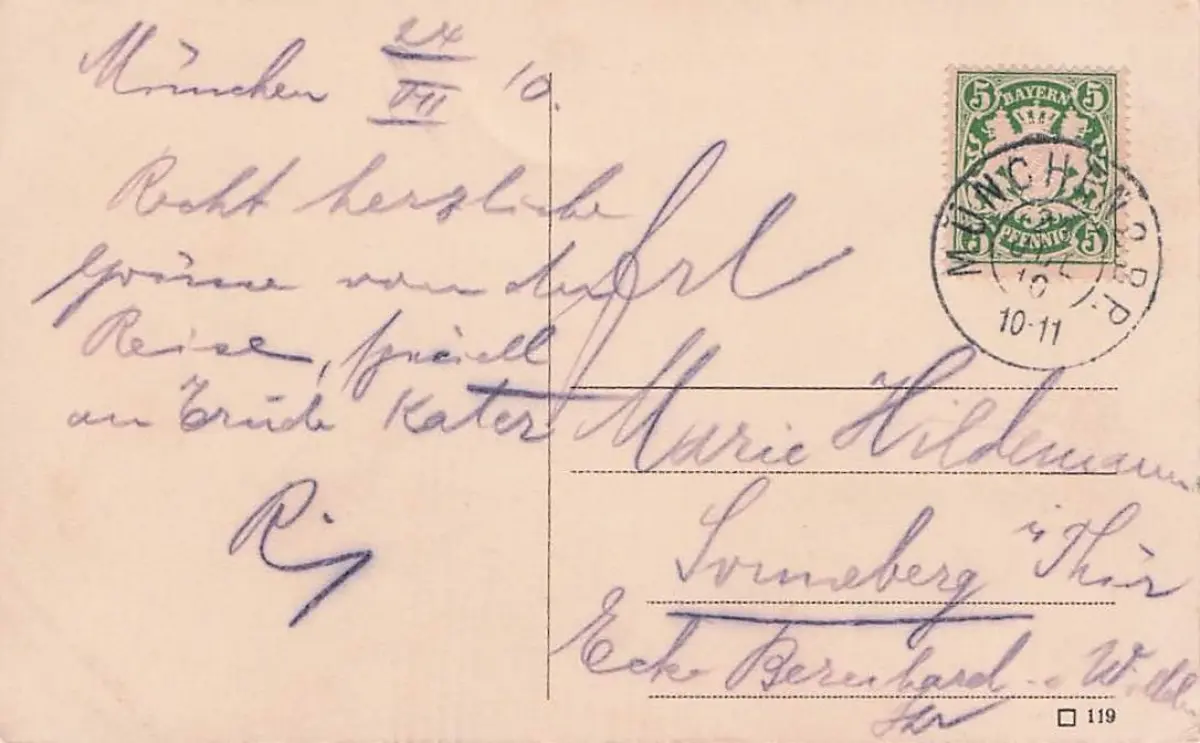 München 24/VII 10.
Recht herzliche
Grüsse von der
Reise, speciell
an Trude Kater
Frl
Marie Hildemann
Sonneberg i/Thür
Ecke Bernhard
Str
5 BAYERN 5
5 PFENNIG 5
MÜNCHEN 2 B.P.
JUL
10
10-11
119